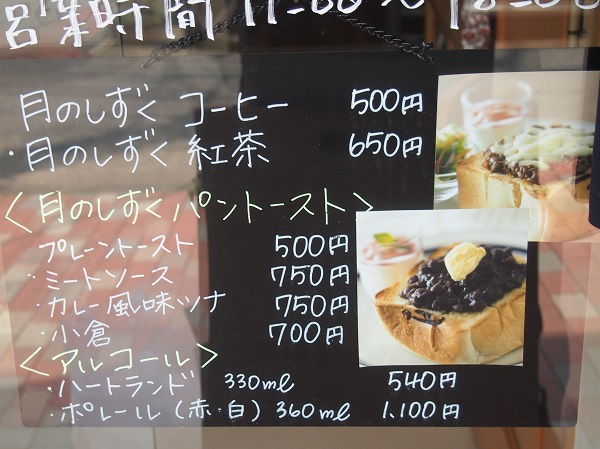 営業時間 11:00〜18:00
月のしずく コーヒー 500円
・月のしずく 紅茶 650円
<月のしずくパントースト>
プレーントースト 500円
・ミートソース 750円
・カレー風味ツナ 750円
・小倉 700円
<アルコール>
・ハートランド 330ml 540円
・ポレール(赤・白) 360ml 1.100円